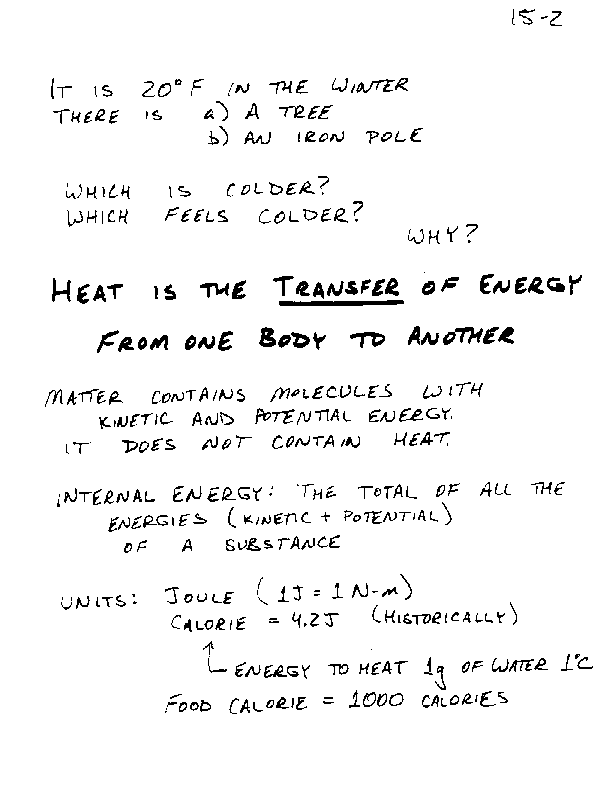 15-2
IT IS 20°F IN THE WINTER
THERE IS a) A TREE
b) AN IRON POLE
WHICH IS COLDER?
WHICH FEELS COLDER?
WHY?
HEAT IS THE TRANSFER OF ENERGY
FROM ONE BODY TO ANOTHER
MATTER CONTAINS MOLECULES WITH
KINETIC AND POTENTIAL ENERGY.
IT DOES NOT CONTAIN HEAT.
INTERNAL ENERGY: THE TOTAL OF ALL THE
ENERGIES (KINETIC + POTENTIAL)
OF A SUBSTANCE
UNITS: JOULE (1J = 1 N-m)
CALORIE = 4.2J (HISTORICALLY)
ENERGY TO HEAT 1g OF WATER 1°C
FOOD CALORIE = 1000 CALORIES